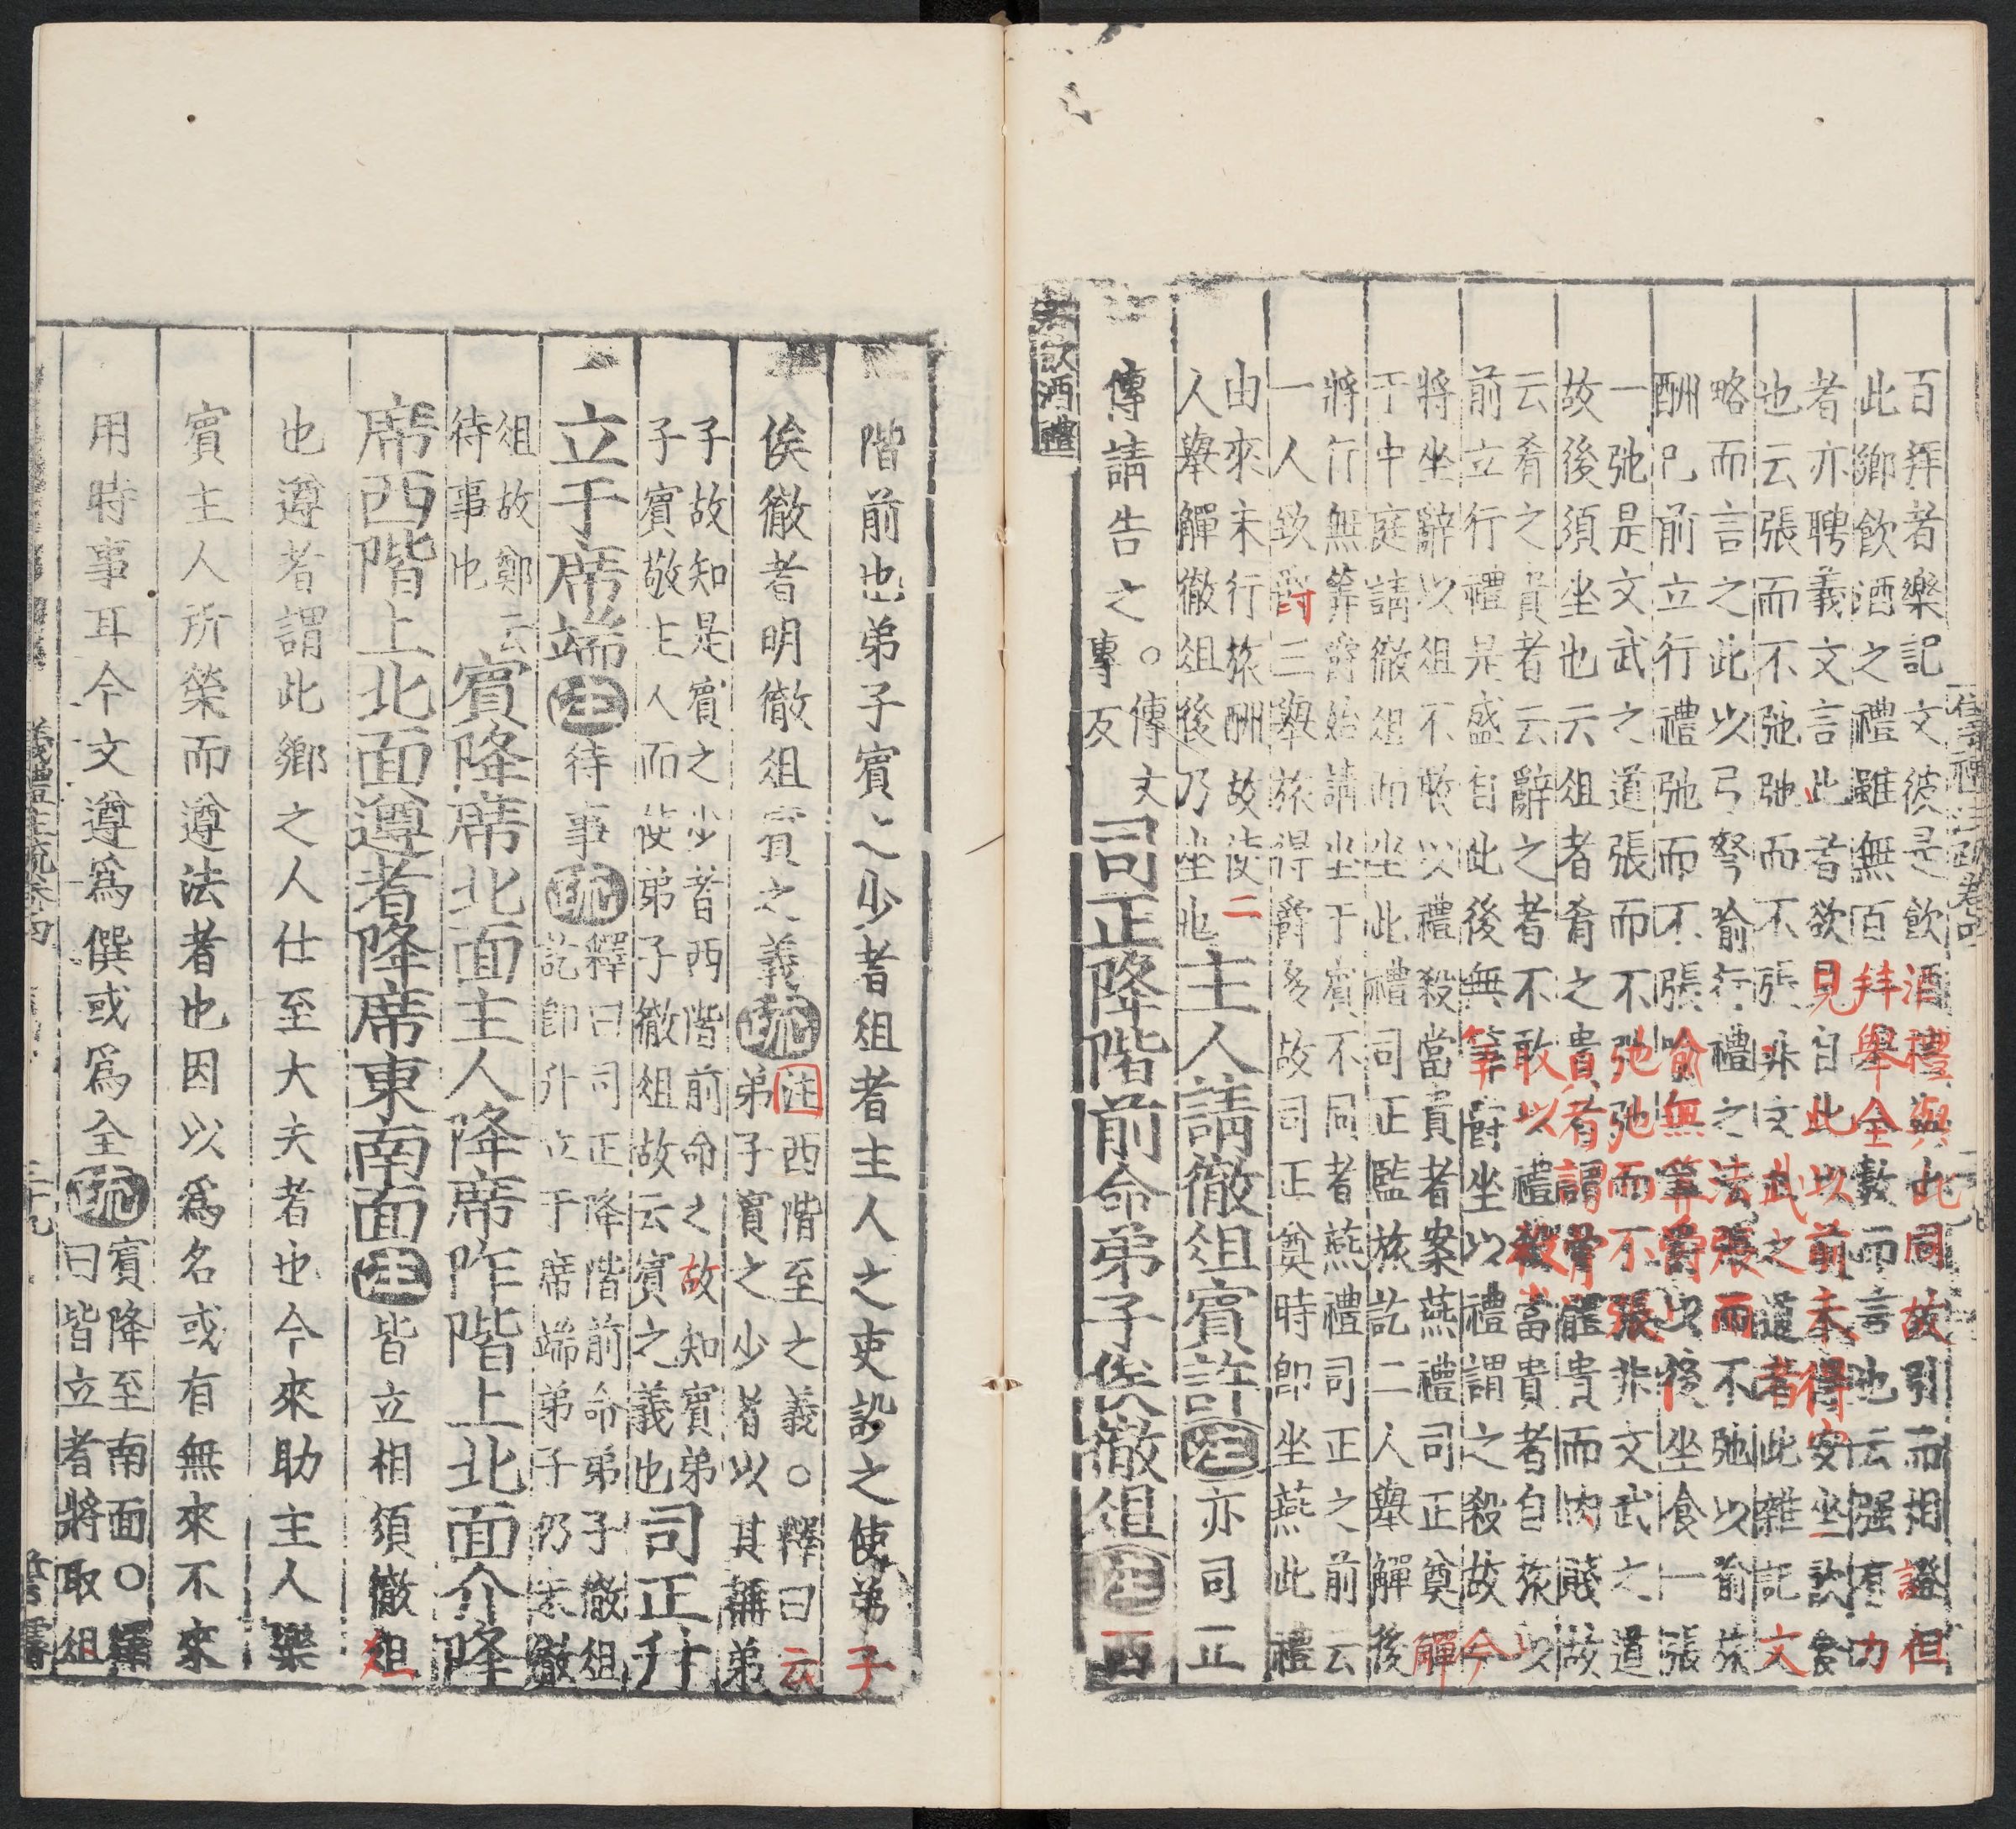 百拜者樂記文彼是飲酒禮與此同故引而相證但
此鄉飲酒之禮雖無百拜舉全數而言也云强有力
者亦聘義文言此者欲見自此以前未得安坐飲食
也云張而不弛弛而不張非文武之道者此雜記文
略而言之此以弓弩喻行禮之法張而不弛以喻旅
酬已前立行禮弛而不張喻無筭爵以後坐食一張
一弛是文武之道張而不弛弛而不張非文武之道
故後須坐也云俎者肴之貴者謂骨體貴而肉賤故
云肴之貴者云辭之者不敢以禮殺當貴者自旅以
前立行禮是盛自此後無筭爵坐以禮謂之殺故今
將坐辭以俎不敢以禮殺當貴者案燕禮司正奠觶
于中庭請徹俎而坐此禮司正監旅訖二人舉觶後
將行無筭爵始請坐于賓不同者燕禮司正之前云
一人致爵三舉旅得爵多故司正奠時即坐燕此禮
由來未行旅酬故使二
人舉觶徹俎後乃坐也
主人請徹俎賓許注亦司正
傳請告之○傳丈
專反
司正降階前命弟子俟徹俎注西
鄉飲酒禮
階前也弟子賓之少者俎者主人之吏設之使弟子
俟徹者明徹俎賓之義疏注西階至之義○釋曰云
弟子賓之少者以其稱弟
子故知是賓之少者西階前命之故知賓弟
子賓敬主人而使弟子徹俎故云賓之義也
司正升
立于席端注待事疏釋曰司正降階前命弟子徹俎
訖即升立于席端弟子仍未徹
俎故鄭云
待事也
賓降席北面主人降席阼階上北面介降
席西階上北面遵者降席東南面注皆立相須徹俎
也遵者謂此鄉之人仕至大夫者也今來助主人樂
賓主人所榮而遵法者也因以爲名或有無來不來
用時事耳今文遵爲僎或爲全疏賓降至南面○釋
曰皆立者將取俎
儀禮注疏卷四
三十九